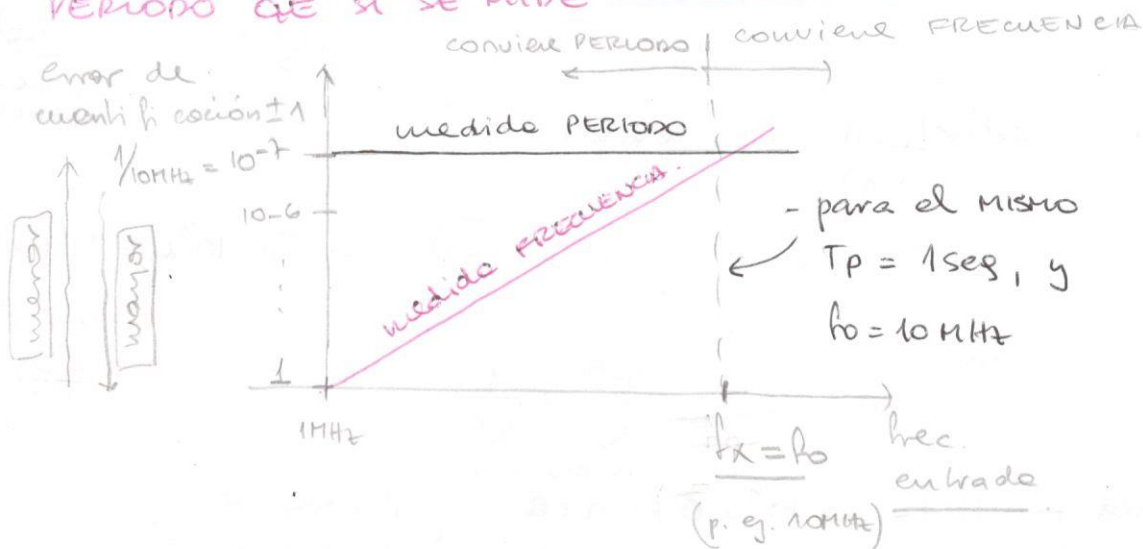 PERIODO QUE SI SE MIDE
conviene PERIODO | conviene FRECUENCIA
error de
cuantificación ±1
medida PERIODO
1/10MHz = 10-7
10-6
medida FRECUENCIA.
menor
mayor
- para el MISMO
Tp = 1seg, y
fo = 10 MHz
1
1MHz
fx = fo
(p. ej. 10MHz)
frec.
entrada